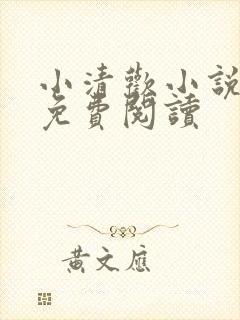 小清歡小說
免費閱讀
黃文應